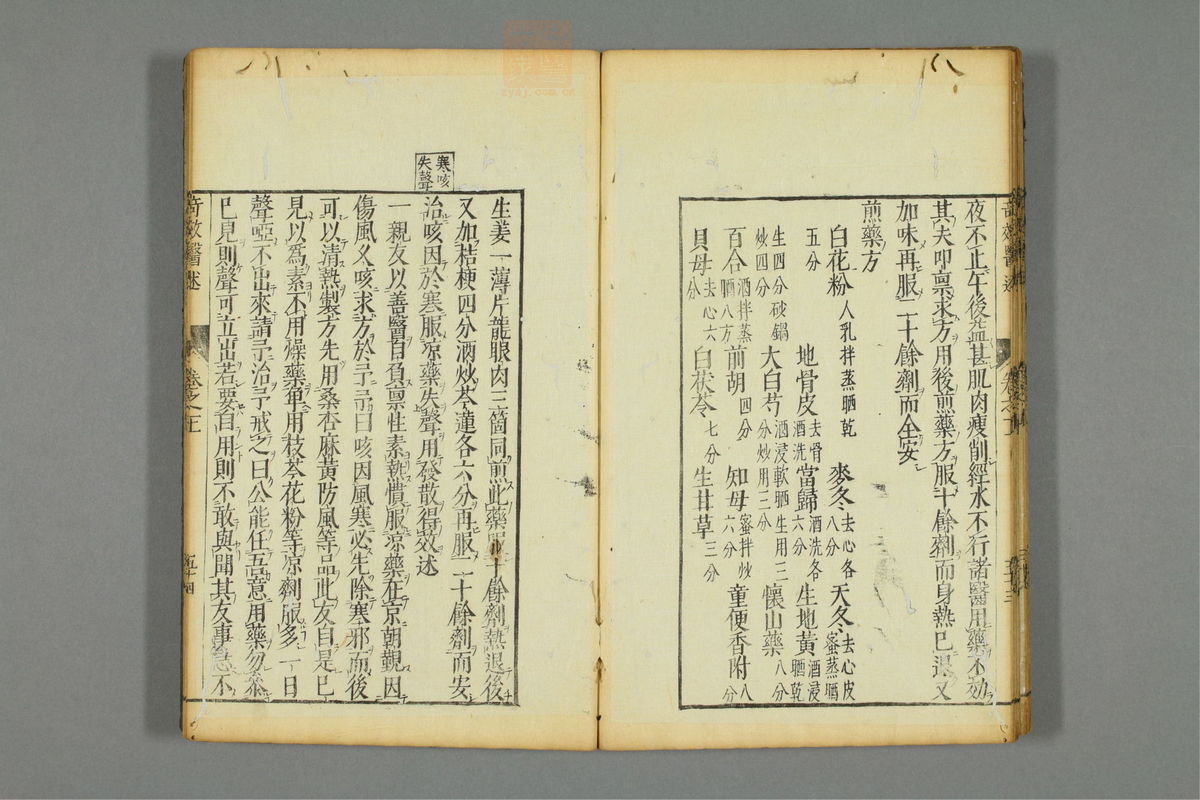 夜不止午後益甚肌肉瘦削經水不行諸醫用藥不効
其夫叩禀求方用後煎藥方服十餘劑而身熱已退又
加味再服二十餘劑而全安
煎藥方
白花粉人乳拌蒸晒乾五分 麥冬去心各八分 天冬去心皮蜜蒸晒
地骨皮去骨酒洗 當歸酒洗各六分 生地黃酒浸晒乾
生四分砂鍋炒四分 大白芍酒浸軟晒生用三分炒用三分 懷山藥八分
百合酒拌蒸晒八分 前胡四分 知母蜜拌炒六分 童便香附八分
貝母去心六分 白茯苓七分 生甘草三分
奇效醫述 卷之下 五十三
生姜一薄片龍眼肉三箇同煎此藥服十餘劑熱退後
又加桔梗四分酒炒芩蓮各六分再服二十餘劑而安
寒咳失聲
治咳因於寒服凉藥失聲用發散得效述
一親友以善醫自負禀性素熱慣服凉藥在京朝覲因
傷風又咳求方於予予曰咳因風寒必先除寒邪而後
可以清熱製方先用桑杏麻黃防風等品此友自是已
見以爲素不用燥藥單用枝芩花粉等凉劑服多一日
聲啞不出來請予治予戒之曰公能任吾意用藥勿叅
已見則聲可立出若要自用則不敢與聞其友事急不
奇效醫述 卷之下 五十四